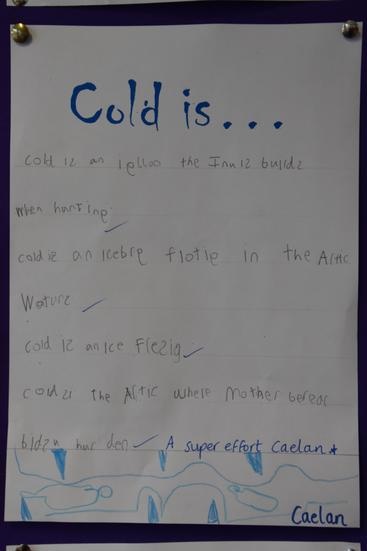 Cold is...
cold iz an igloo the Inuiz buildz
when hunting
cold iz an Icebre flotie in the Artic
Woturz
cold iz an Ice Flezig
cold zi the Artic where mother bereac
bldzn hur den A super effort Caelan
Caelan